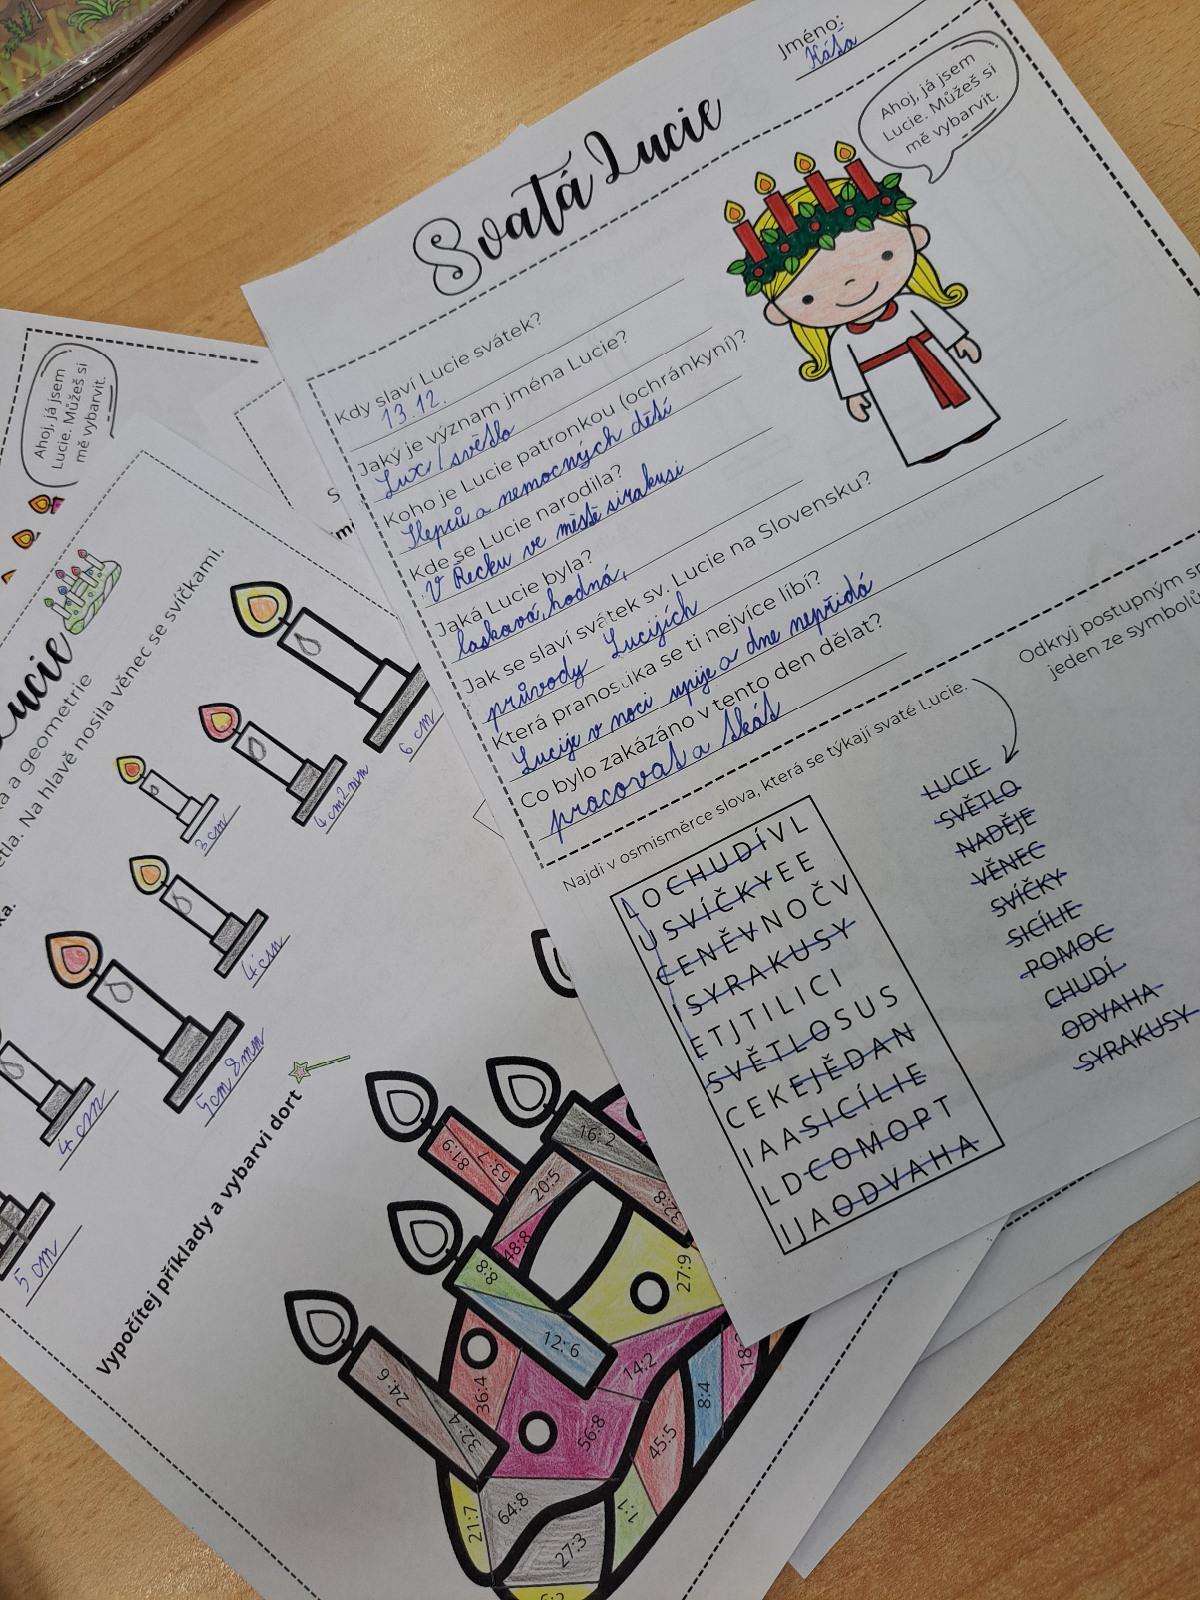 Jméno:
Káťa
Ahoj, já jsem
Lucie. Můžeš si
mě vybarvit.
Svatá Lucie
Kdy slaví Lucie svátek?
13.12.
Jaký je význam jména Lucie?
Lux / světlo
Koho je Lucie patronkou (ochránkyní)?
Slepců a nemocných dětí
Kde se Lucie narodila?
V Řecku ve městě sirakusi
Jaká Lucie byla?
laskavá, hodná,
Jak se slaví svátek sv. Lucie na Slovensku?
průvody Lucijích
Která pranostika se ti nejvíce líbí?
Lucije v noci upije a dne nepřidá
Co bylo zakázáno v tento den dělat?
pracovat a tkát
Najdi v osmisměrce slova, která se týkají svaté Lucie.
LOCHUDÍVL
USVÍČKYEE
CENĚVNOČV
ISYRAKUSY
ETJTILICI
SVĚTLOSUS
CEKEJĚDAN
IAASICÍLIE
LDCOMOPT
IJAODVAHA
LUCIE
SVĚTLO
NADĚJE
VĚNEC
SVÍČKY
SICÍLIE
POMOC
CHUDÍ
ODVAHA
SYRAKUSY
Odkryj postupným
jeden ze symbolů
Ahoj, já jsem
Lucie. Můžeš si
mě vybarvit.
Lucie
ka a geometrie
Na hlavě nosila věnec se svíčkami.
6 cm
4 cm 2 mm
3 cm
4 cm
5 cm 8 mm
4 cm
5 cm
Vypočítej příklady a vybarvi dort
81:9
63:7
16:2
20:5
32:8
48:8
8:8
27:9
12:6
14:2
24:6
36:4
32:4
56:8
8:4
45:5
64:8
21:7
1:1
27:3